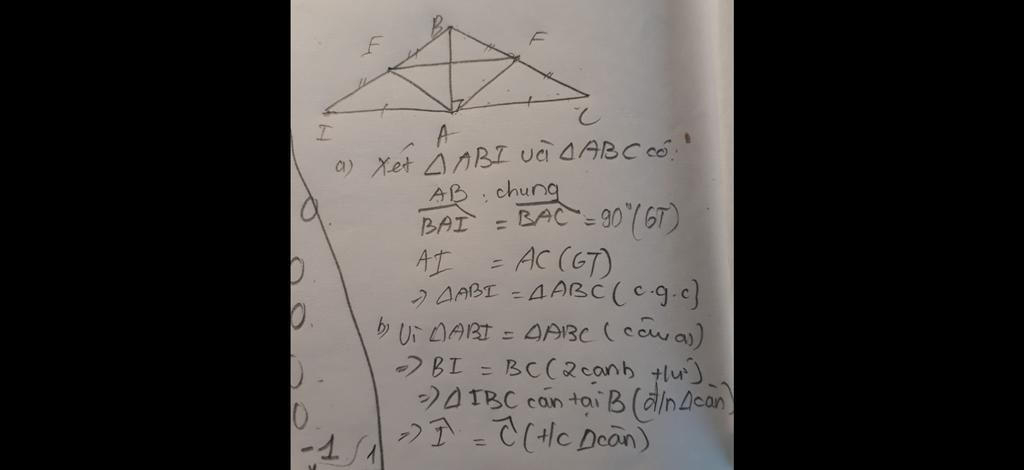 B
E F
I A C
a) Xét ΔABI và ΔABC có:
AB : chung
BAI = BAC = 90° (GT)
AI = AC (GT)
=> ΔABI = ΔABC (c.g.c)
b) Vì ΔABI = ΔABC (câu a)
=> BI = BC (2 cạnh t/ư)
=> ΔIBC cân tại B (đ/n Δcân)
=> Î = Ĉ (t/c Δcân)
-1